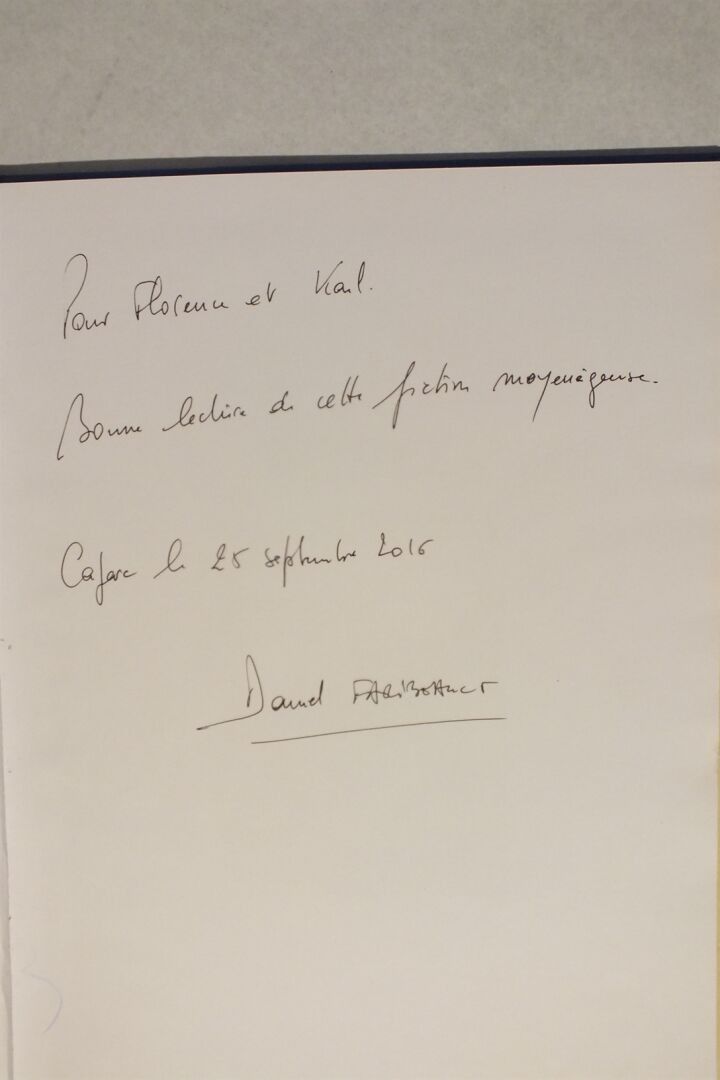 Pour Florence et Karl.
Bonne lecture de cette fiction moyenâgeuse.
Cajarc le 25 septembre 2016
Daniel